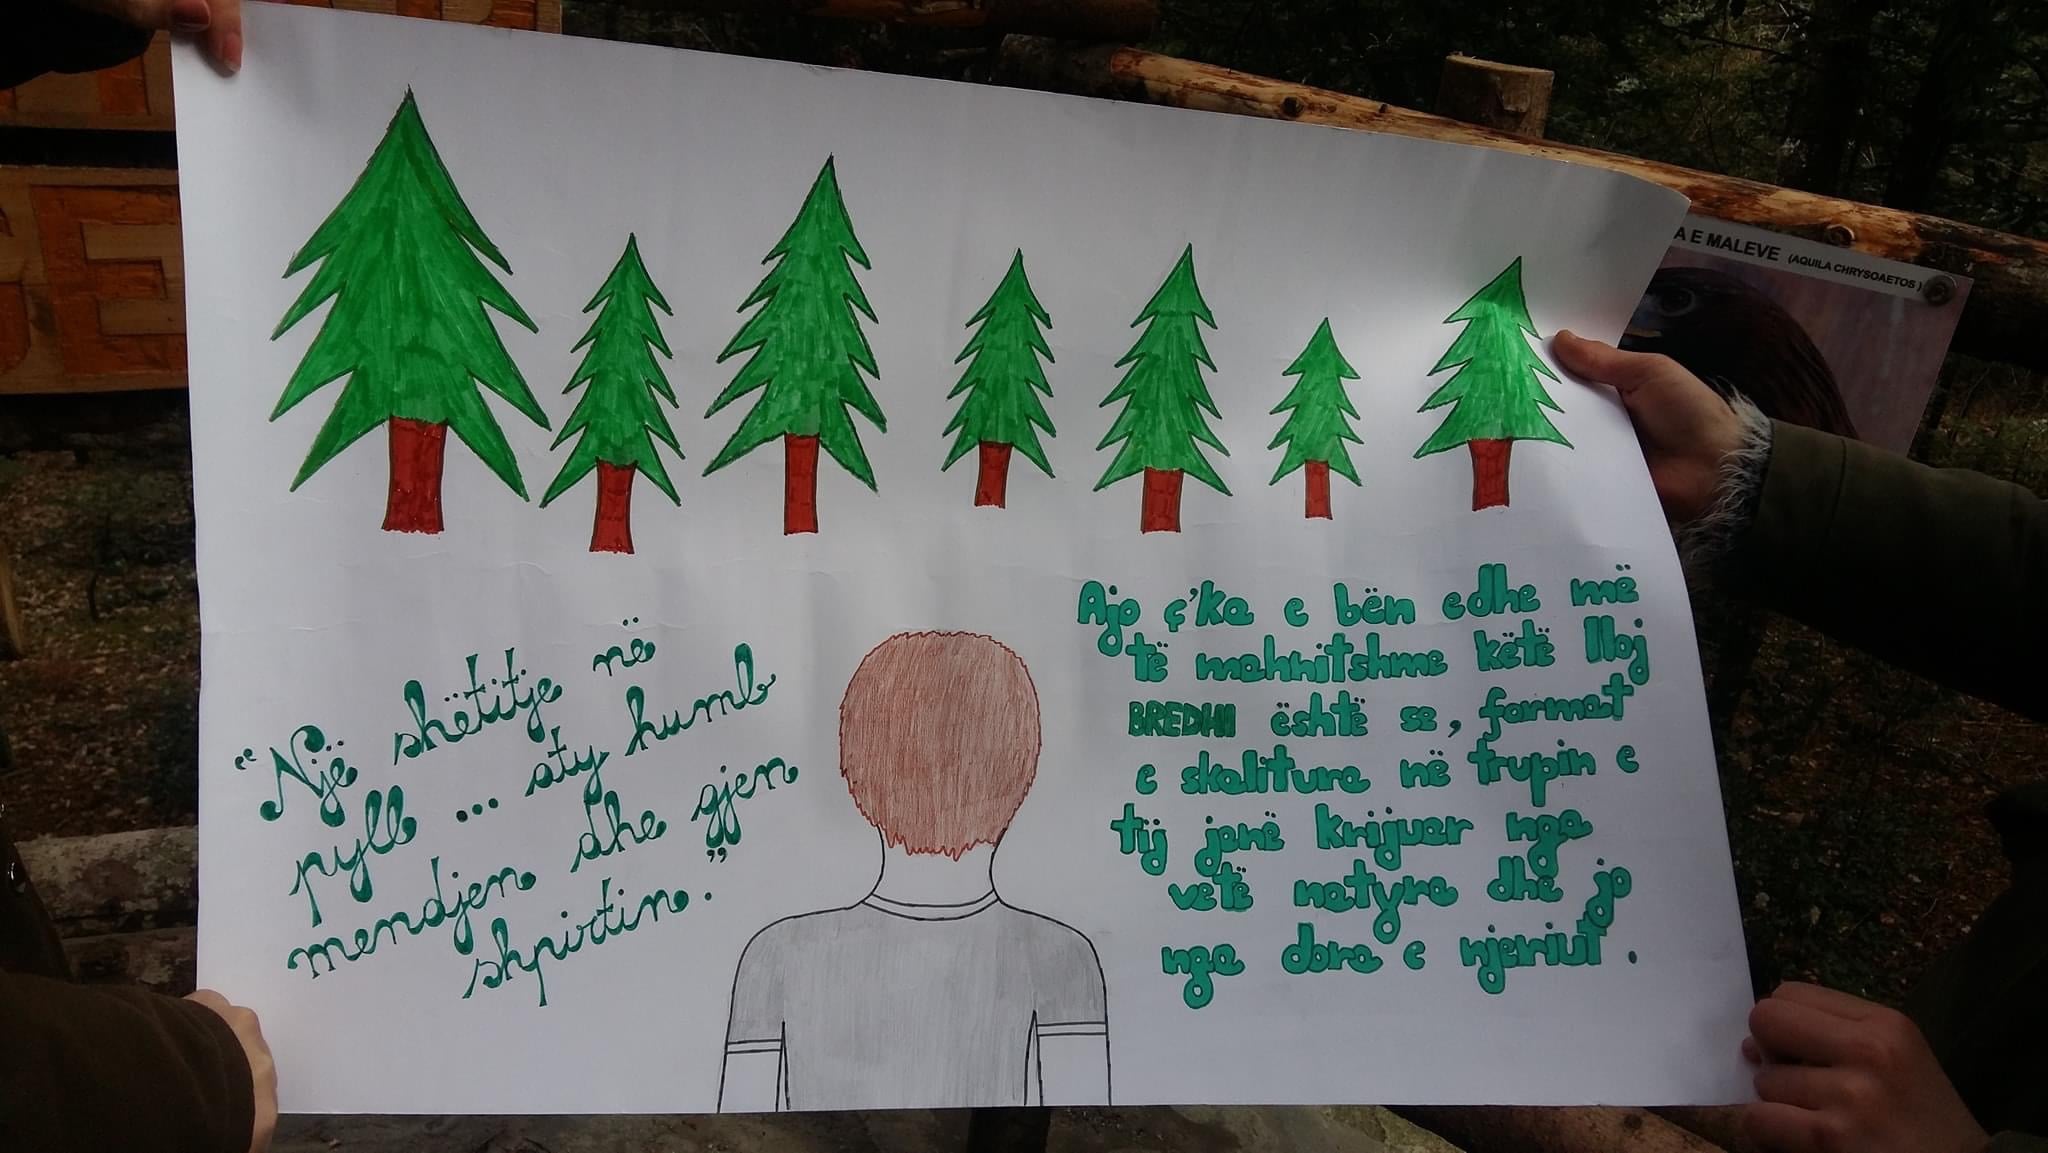 "Një shëtitje në
pyll ... aty humb
mendjen dhe gjen
shpirtin."
Ajo ç'ka e bën edhe më
të mahnitshme këtë lloj
BREDHI është se, format
e skalitura në trupin e
tij janë krijuar nga
vetë natyra dhe jo
nga dora e njeriut.
A E MALEVE (AQUILA CHRYSGAETOS)